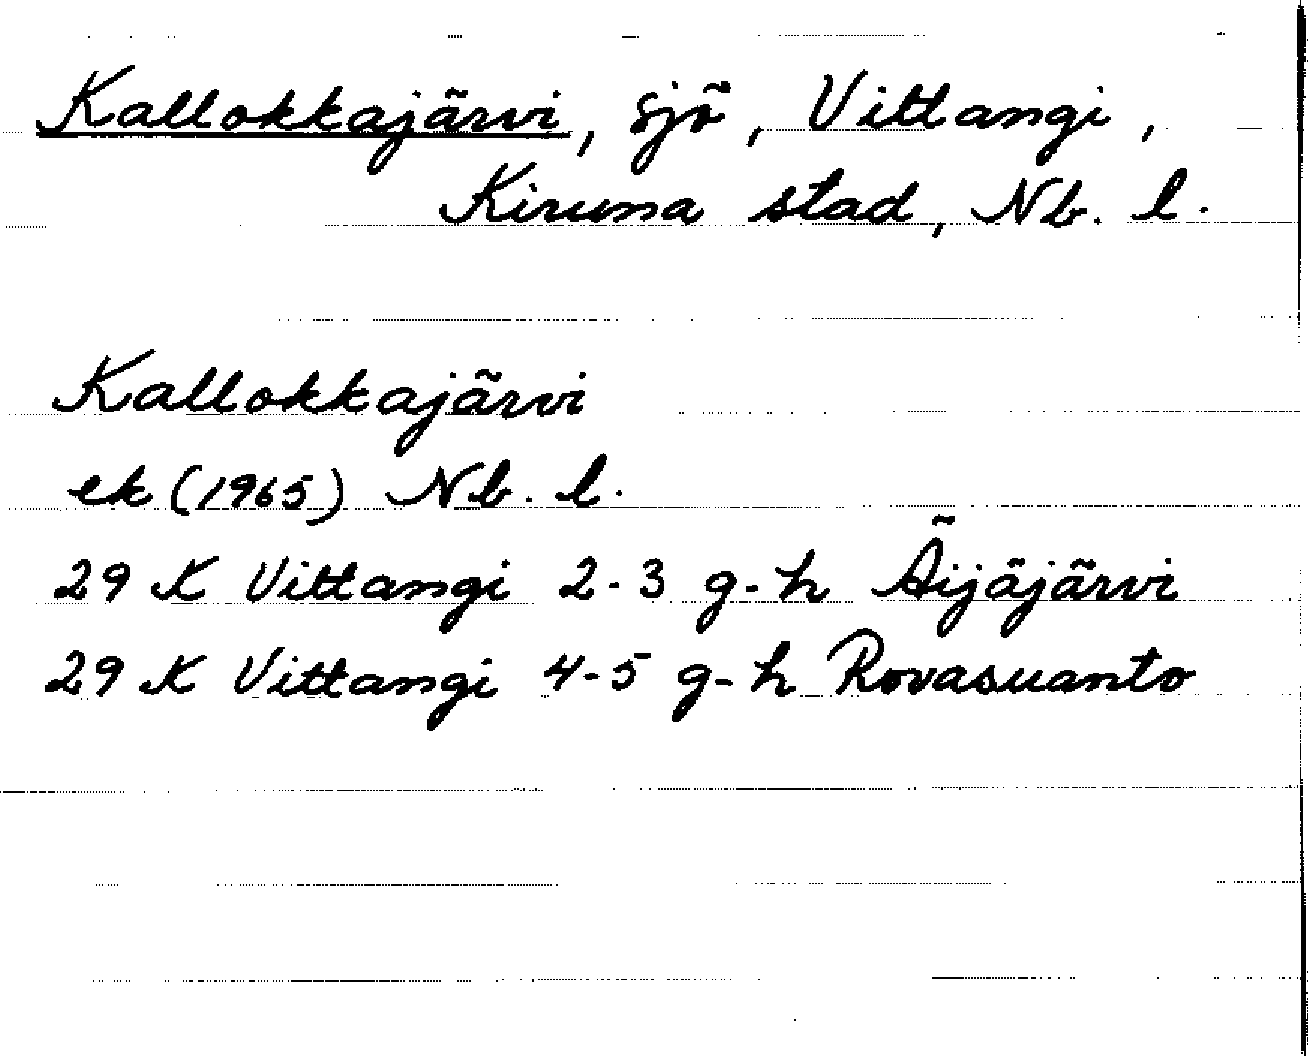 Kallokkajärvi, sjö, Vittangi,
Kiruna stad, Nb. l.
Kallokkajärvi
ek (1965) Nb. l.
29 K Vittangi 2-3 g-h Äijäjärvi
29 K Vittangi 4-5 g-h Rovasuanto